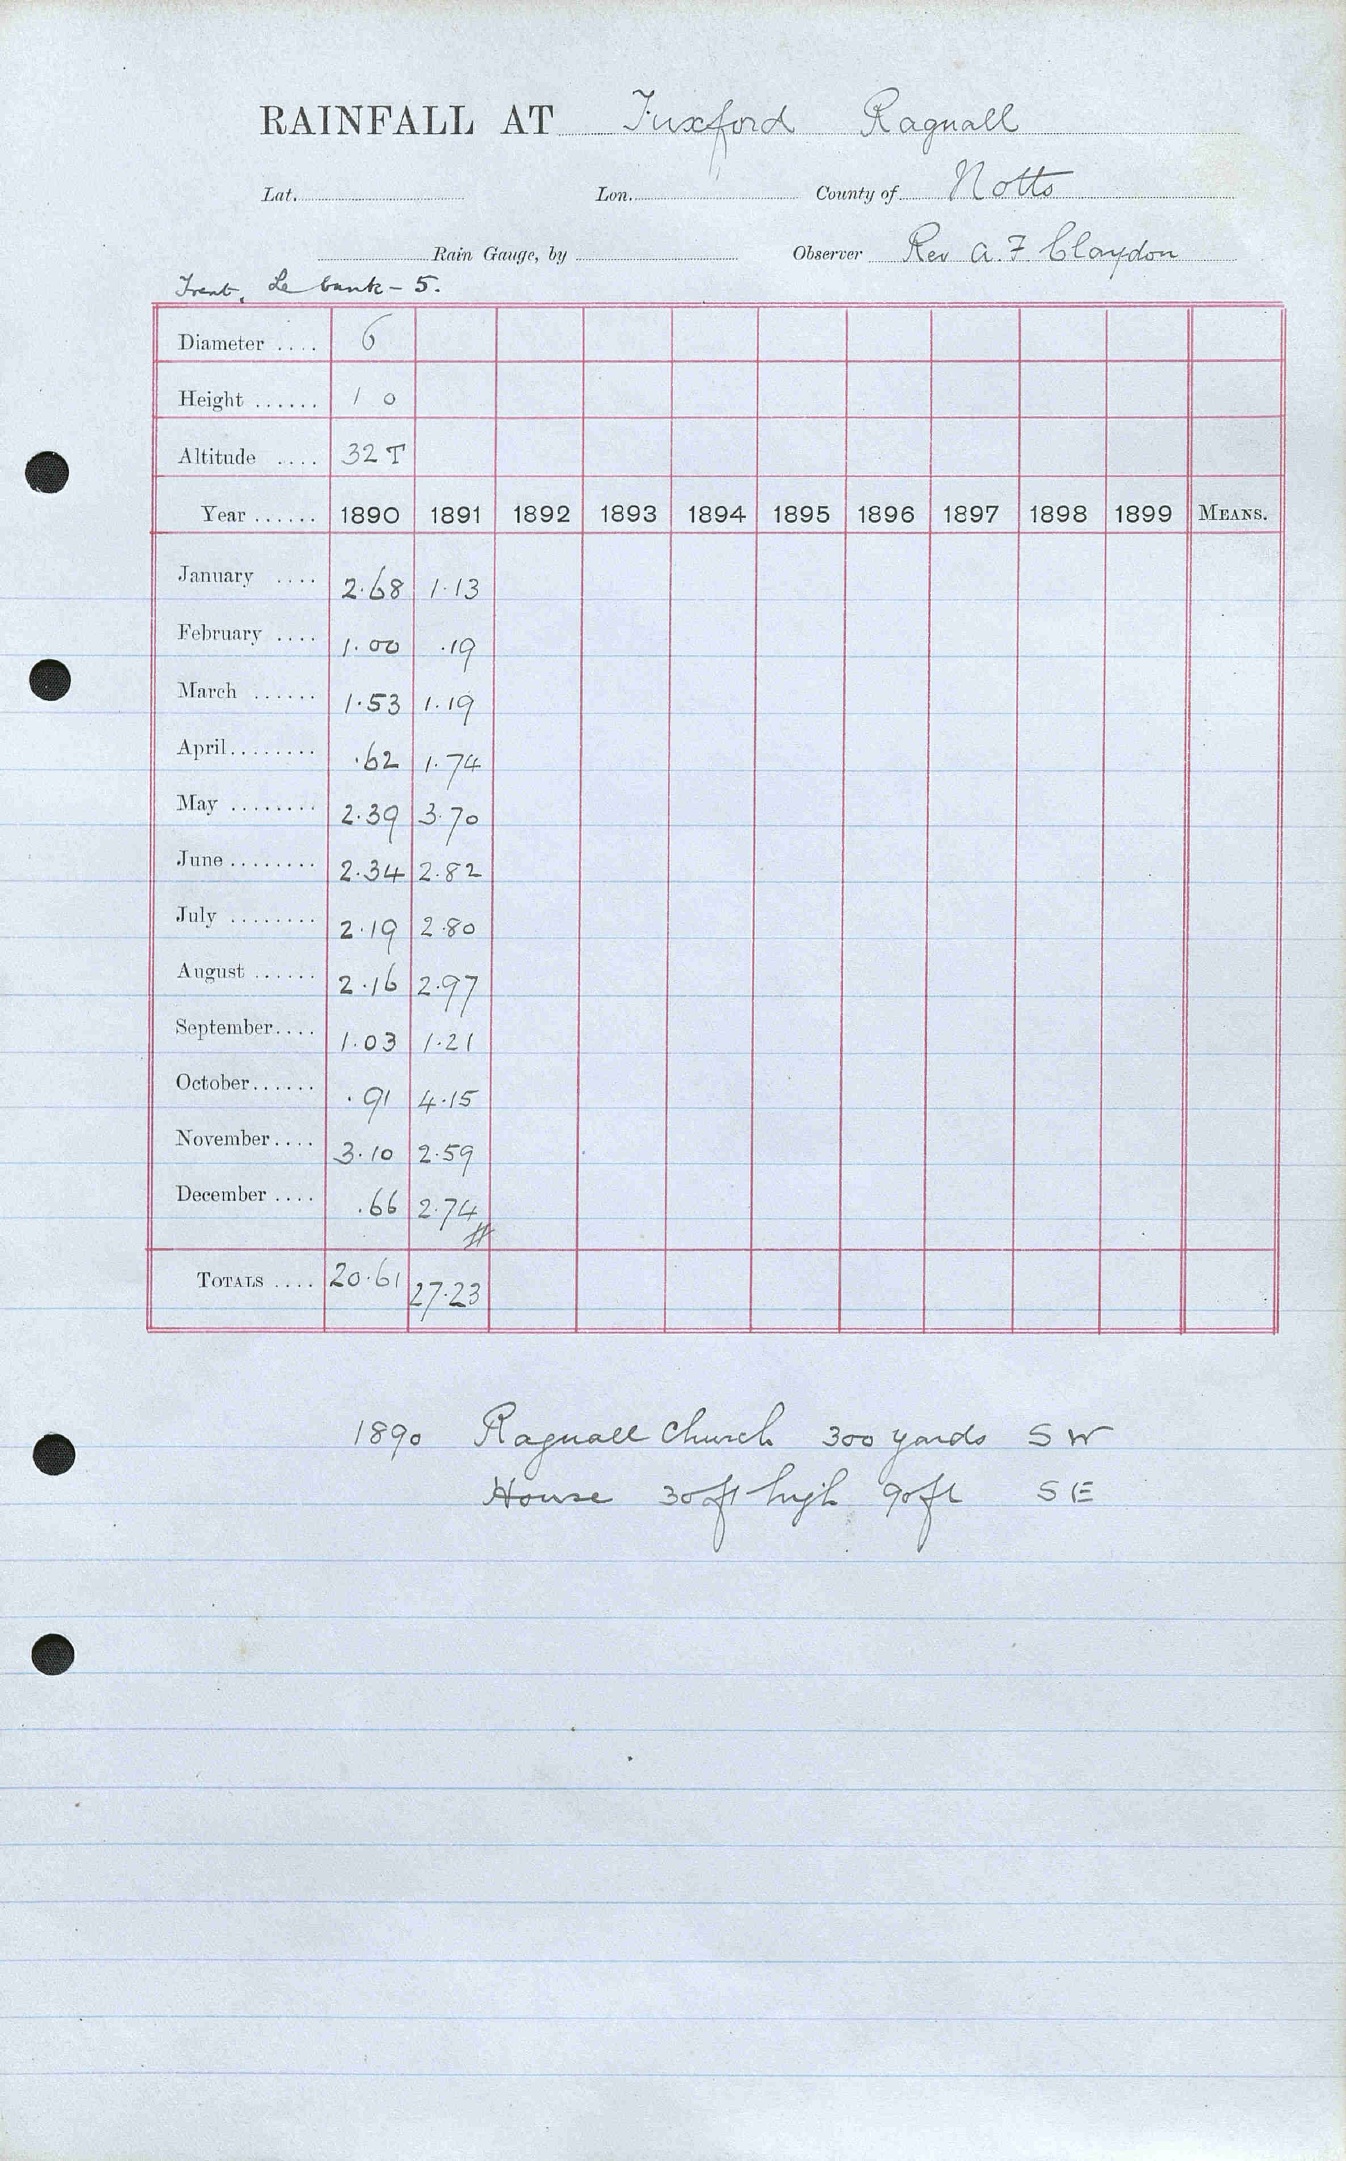 RAINFALL AT Tuxford Ragnall
Lat. Lon. County of Notts
Rain Gauge, by Observer Rev A. F Claydon
Trent, Le bank - 5.
Diameter .... 6
Height ...... 1 0
Altitude .... 32 T
Year ...... 1890 1891 1892 1893 1894 1895 1896 1897 1898 1899 MEANS.
January .... 2.68 1.13
February .... 1.00 .19
March ...... 1.53 1.19
April........ .62 1.74
May ........ 2.39 3.70
June ........ 2.34 2.82
July ........ 2.19 2.80
August ...... 2.16 2.97
September.... 1.03 1.21
October...... .91 4.15
November.... 3.10 2.59
December .... .66 2.74
#
TOTALS .... 20.61 27.23
1890 Ragnall Church 300 yards S W
House 30ft high 90ft S E